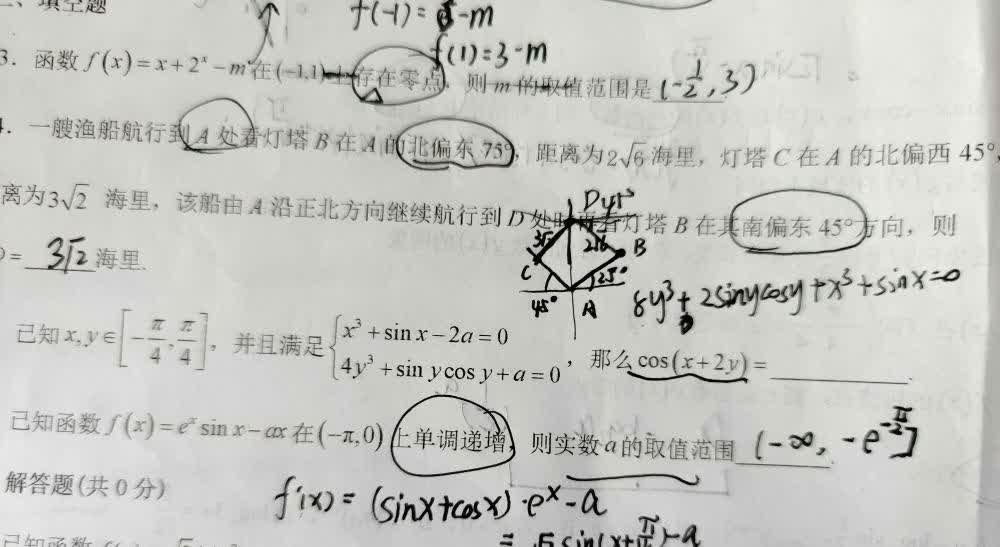 填空题
f(-1) = -m
f(1) = 3-m
3. 函数 f(x) = x + 2^x - m 在 (-1,1) 上存在零点, 则 m 的取值范围是 (-1/2, 3)
4. 一艘渔船航行到 A 处看灯塔 B 在 A 的北偏东 75°, 距离为 2√6 海里, 灯塔 C 在 A 的北偏西 45°,
离为 3√2 海里, 该船由 A 沿正北方向继续航行到 D 处时再看灯塔 B 在其南偏东 45° 方向, 则
= 3√2 海里.
D 45°
3√2 2√6 B
C 25°
45° A
8y³ + 2sinycosy + x³ + sinx = 0
已知 x, y ∈ [-π/4, π/4], 并且满足 { x³ + sin x - 2a = 0
4y³ + sin y cos y + a = 0 , 那么 cos(x + 2y) = ______.
已知函数 f(x) = e^x sin x - ax 在 (-π, 0) 上单调递增, 则实数 a 的取值范围 (-∞, -e^{-π/2}]
解答题(共 0 分)
f'(x) = (sinx + cosx)·e^x - a